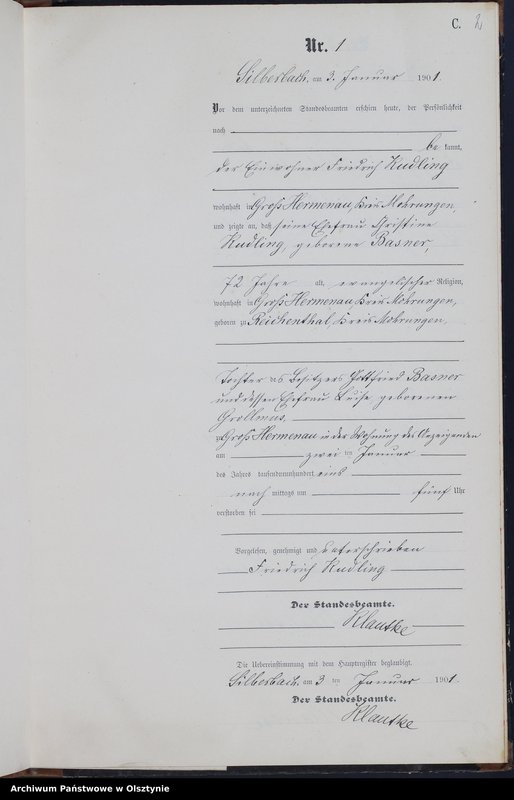 C. 2
Nr. 1
Silberbach, am 3. Januar 1901.
Vor dem unterzeichneten Standesbeamten erschien heute, der Persönlichkeit
nach
be kannt,
der Einwohner Friedrich Kudling
wohnhaft in Groß Hermenau, Kreis Mohrungen,
und zeigte an, daß seine Ehefrau Christine
Kudling, geborene Basner,
72 Jahre alt, evangelischer Religion,
wohnhaft in Groß Hermenau, Kreis Mohrungen,
geboren zu Reichenthal, Kreis Mohrungen,
Tochter des Besitzers Gottfried Basner
und dessen Ehefrau Luise geborenen
Grollmus,
zu Groß Hermenau in der Wohnung des Anzeigenden
am zwei ten Januar
des Jahres tausendneunhundert eins
nach mittags um fünf Uhr
verstorben sei
Vorgelesen, genehmigt und unterschrieben
Friedrich Kudling
Der Standesbeamte.
Klautke
Die Uebereinstimmung mit dem Hauptregister beglaubigt.
Silberbach, am 3 ten Januar 1901.
Der Standesbeamte.
Klautke
Archiwum Państwowe w Olsztynie